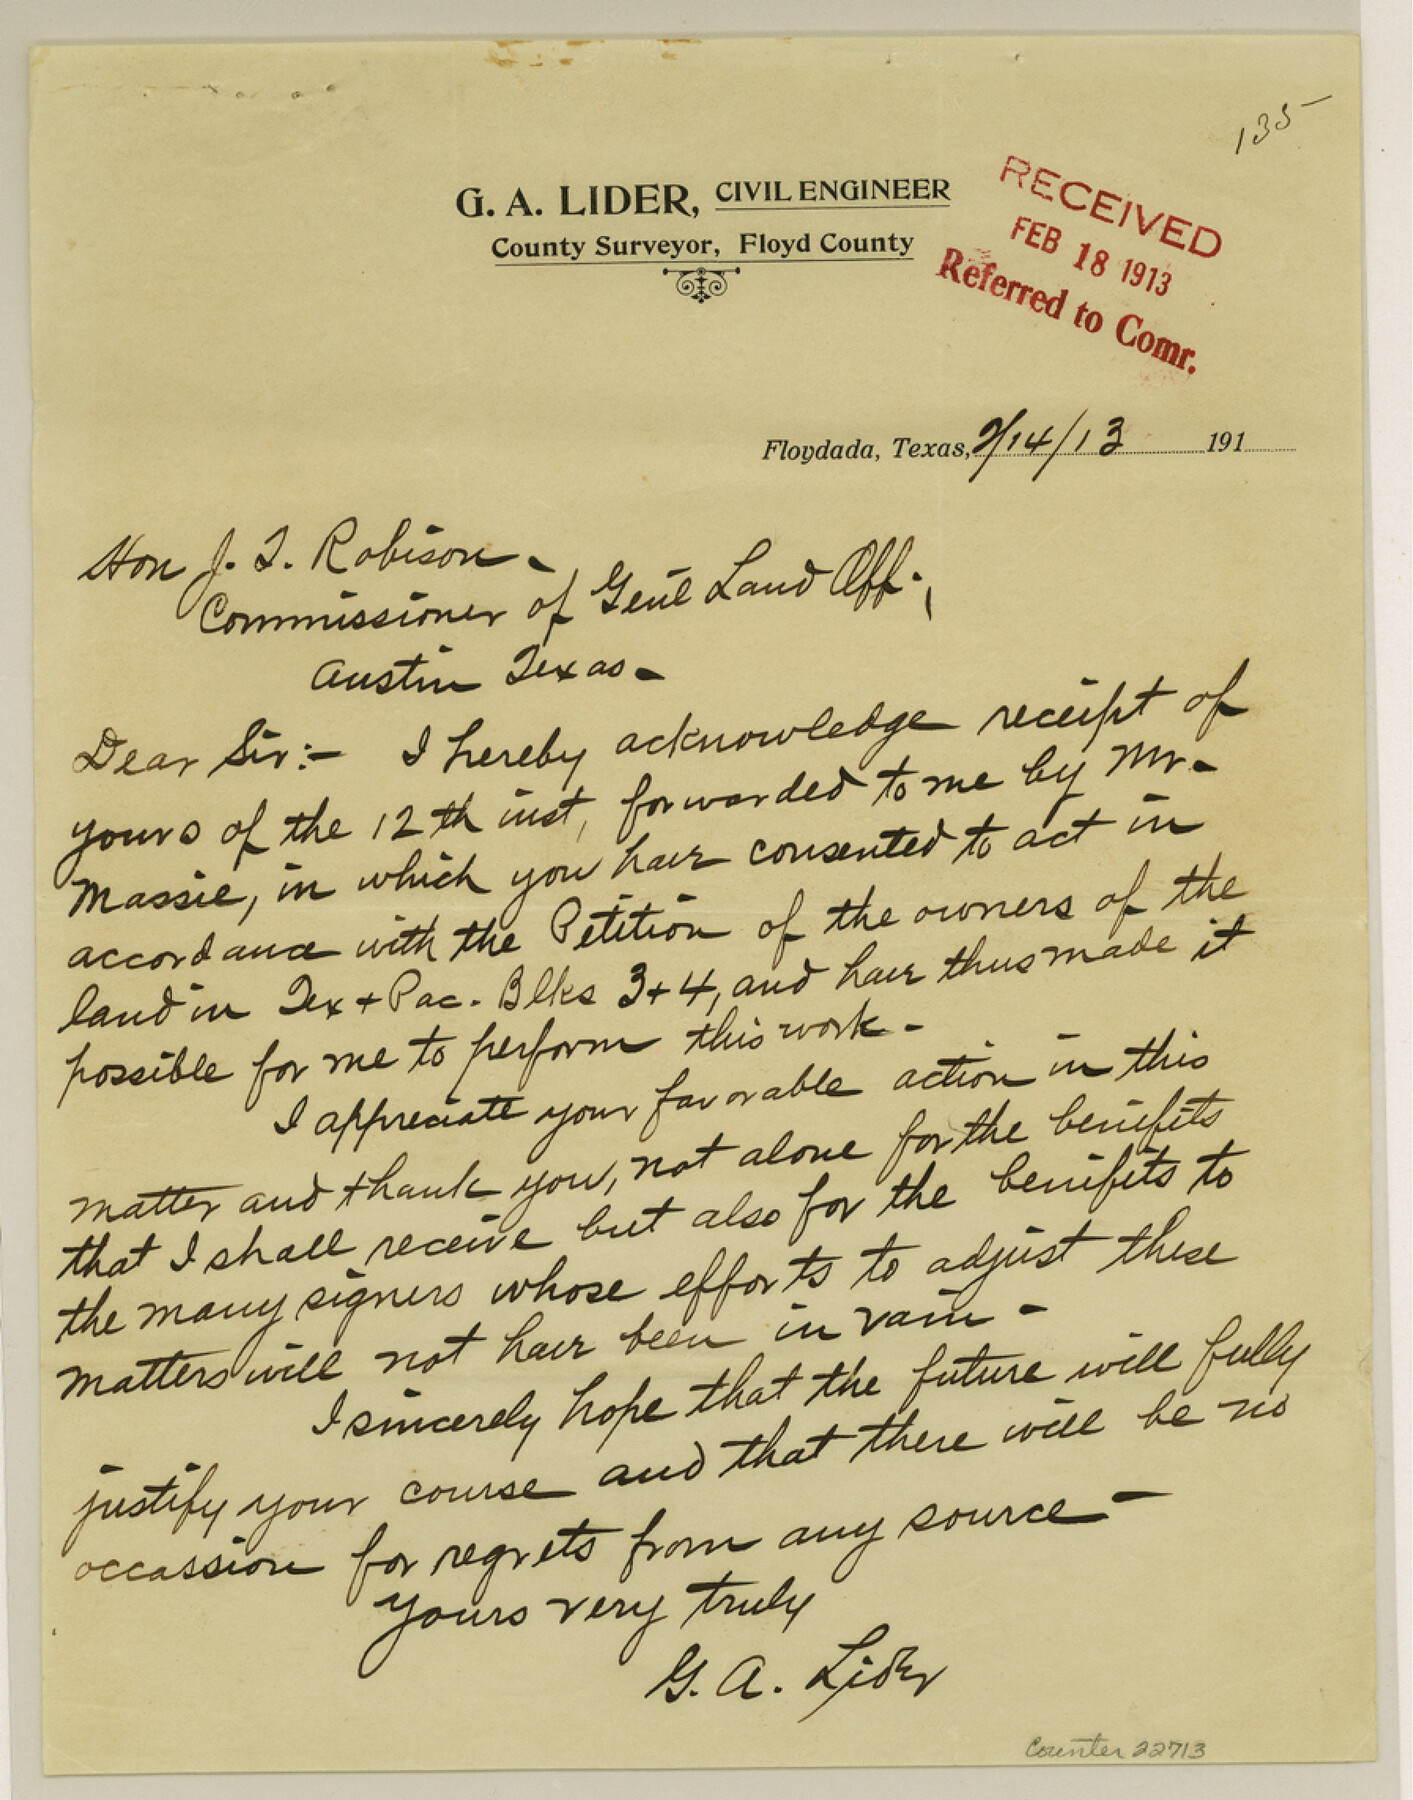 135
G. A. LIDER, CIVIL ENGINEER
County Surveyor, Floyd County
RECEIVED
FEB 18 1913
Referred to Comr.
Floydada, Texas, 2/14/13 191
Hon J. T. Robison -
Commissioner of Gen'l Land Off.,
Austin Texas -
Dear Sir:- I hereby acknowledge receipt of
yours of the 12th inst, forwarded to me by Mr.
Massie, in which you have consented to act in
accordance with the Petition of the owners of the
land in Tex + Pac. Blks 3+4, and have thus made it
possible for me to perform this work -
I appreciate your favorable action in this
matter and thank you, not alone for the benifits
that I shall receive but also for the benifits to
the many signers whose efforts to adjust these
matters will not have been in vain -
I sincerely hope that the future will fully
justify your course and that there will be no
occassion for regrets from any source -
Yours very truly
G. A. Lider
Counter 22713